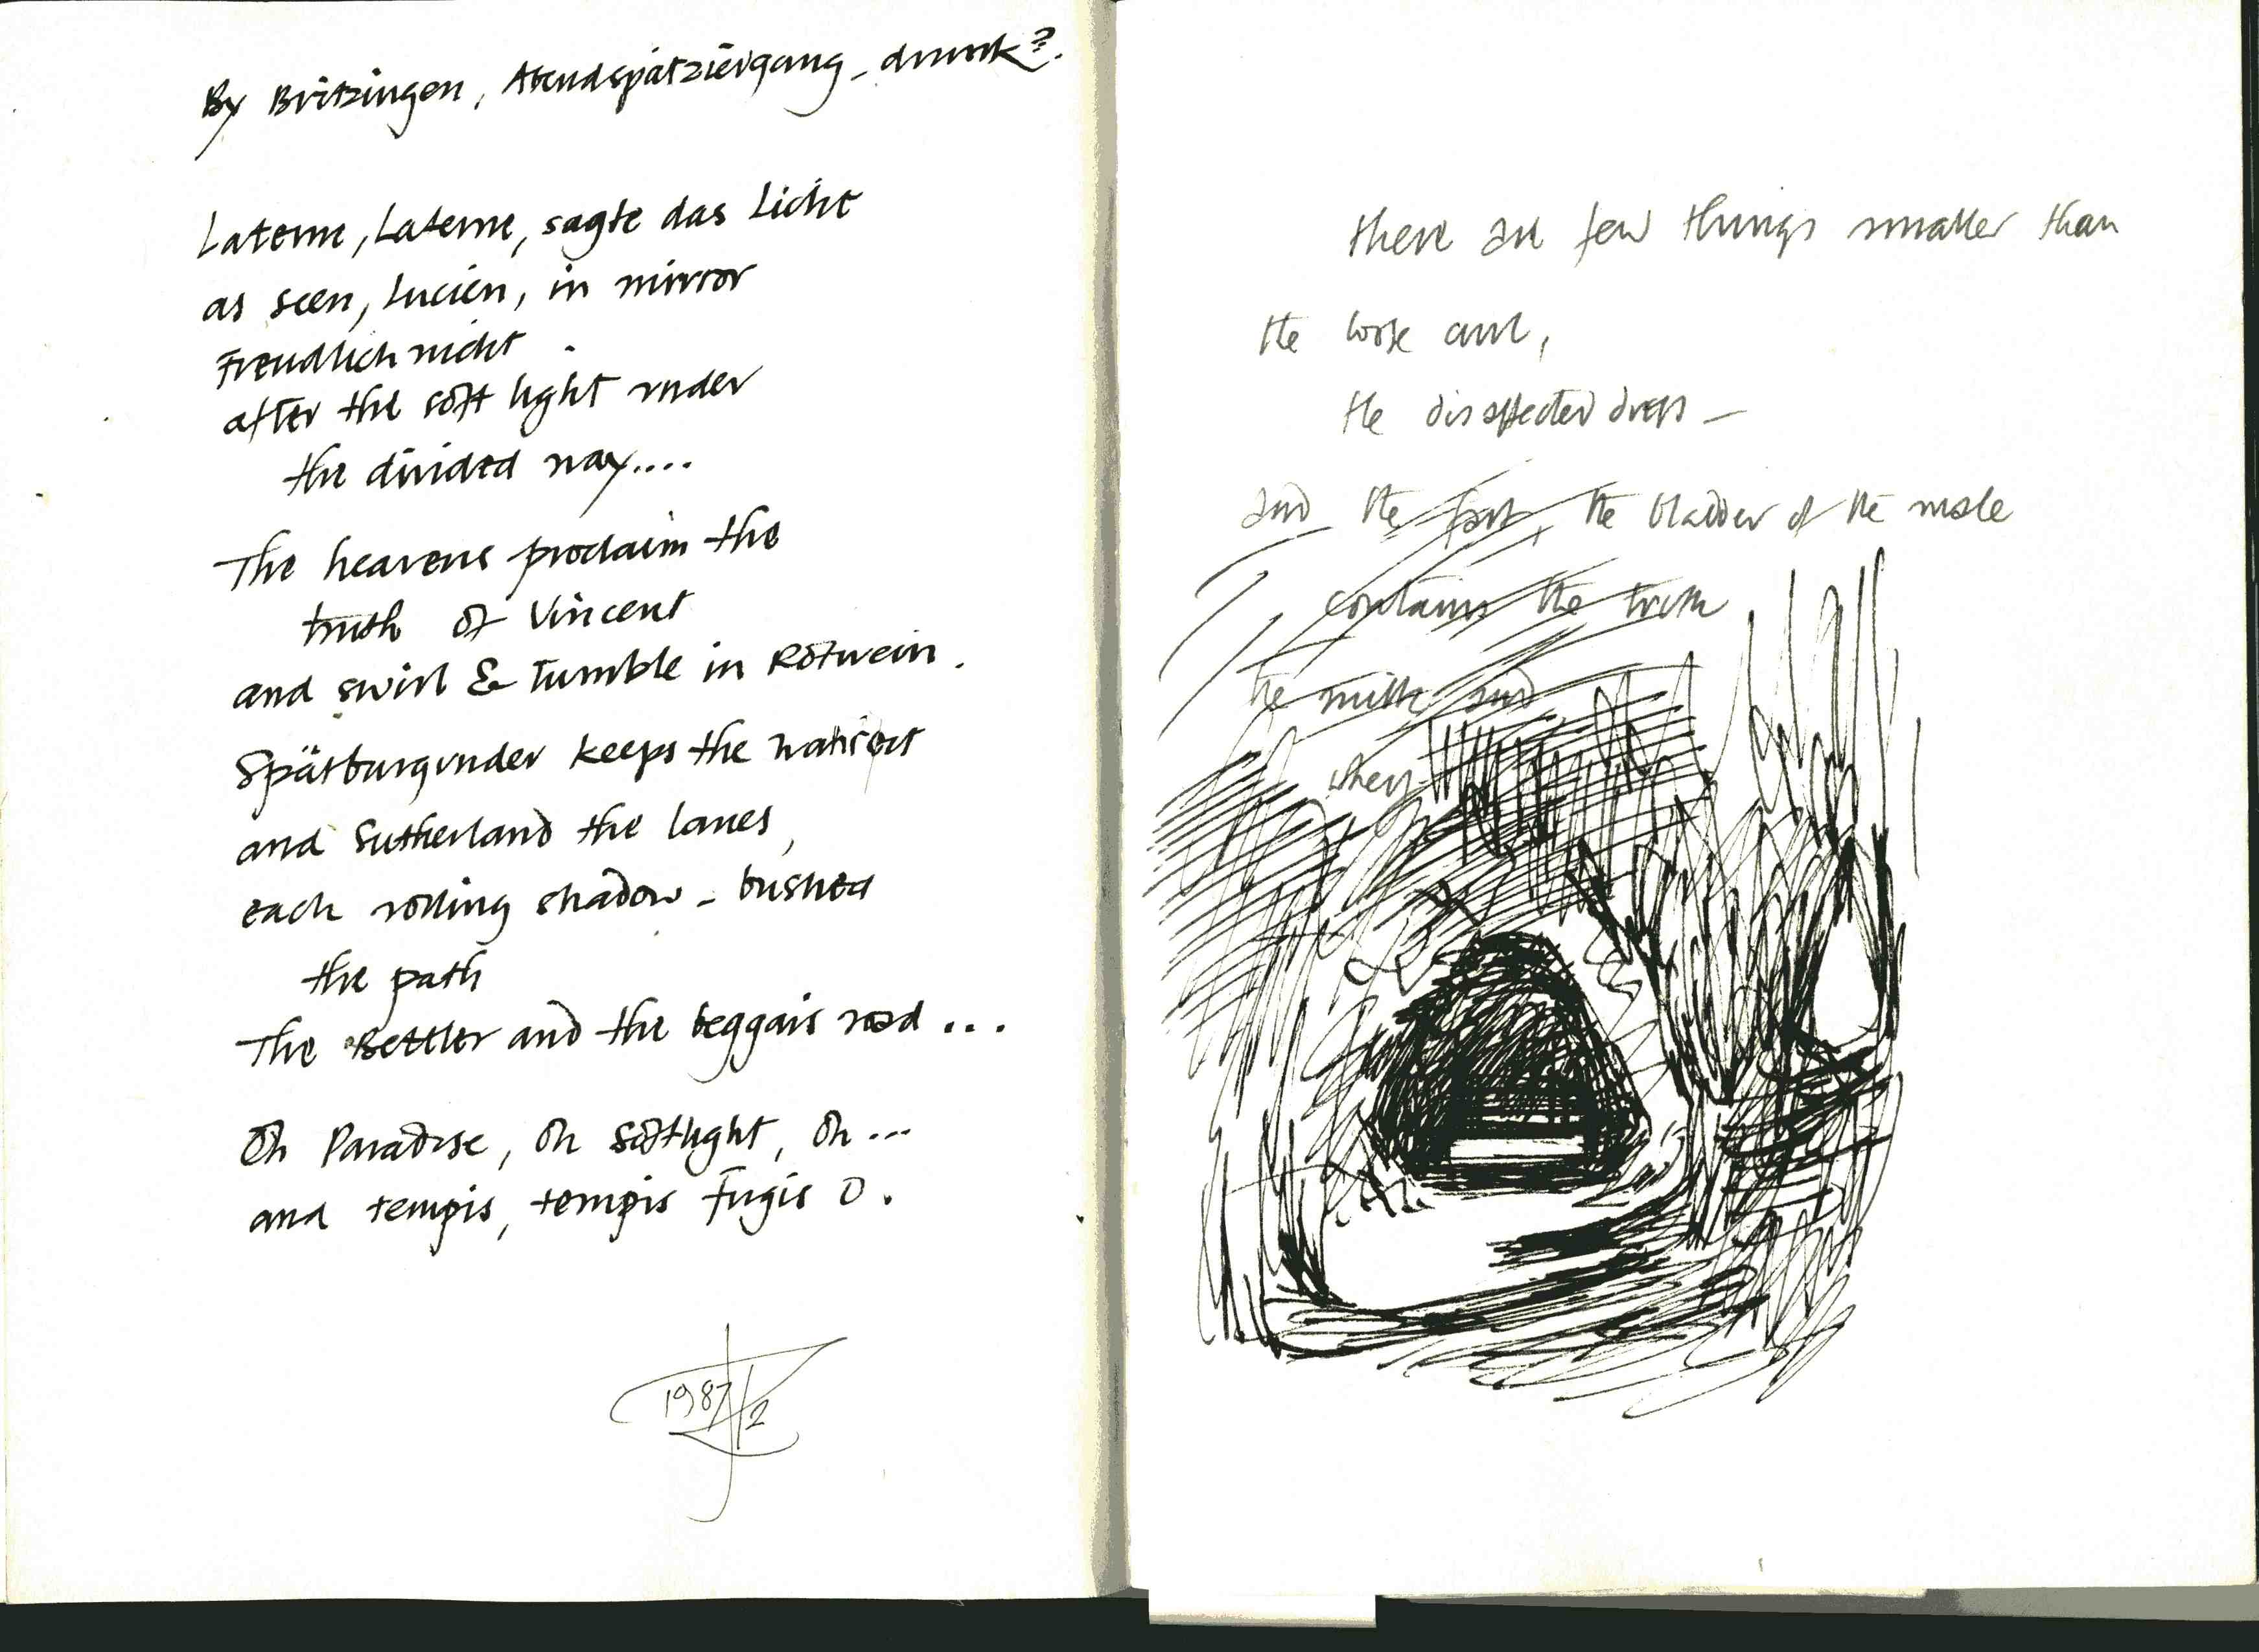 By Britzingen, Abendspatziergang - drunk?.
Laterne, Laterne, sagte das Licht
as seen, Lucien, in mirror
Freudlich nicht.
after the soft light under
the divided way....
The heavens proclaim the
truth of Vincent
and swirl & tumble in Rotwein.
Spätburgunder keeps the
and Sutherland the lanes,
each rolling shadow - bushed
the path
The Bettler and the beggars road ...
Oh Paradise, Oh Softlight, Oh ...
and tempis, tempis Fugis O.
1987/12
there are few things smaller than
the
the disaffected dregs —
and the fart, the bladder of the mole
contains the truth
the milk and
when